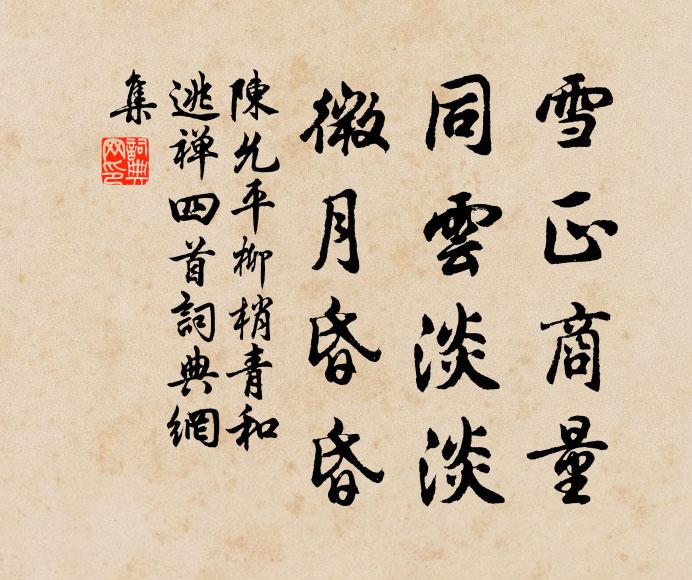 雪正商量
同雲淡淡
微月昏昏
陳允平柳梢青和
逃禅四首詞典網
集
詞典網印